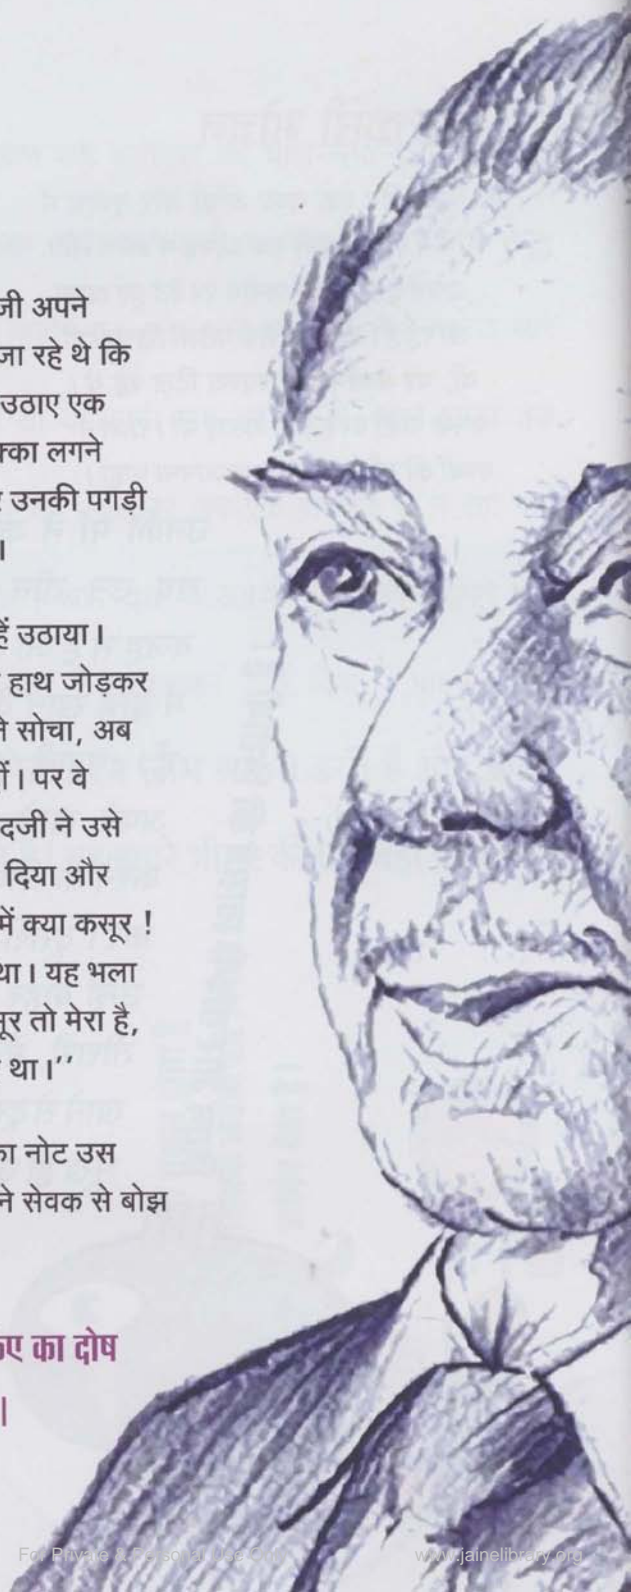 जी अपने
जा रहे थे कि
उठाए एक
लगने
उनकी पगड़ी
।
उठाया।
हाथ जोड़कर
सोचा, अब
। पर वे
ने उसे
दिया और
में क्या कसूर !
था। यह भला
तो मेरा है,
था।’’
नोट उस
ने सेवक से बोझ
का दोष
।
For Private & Personal Use Only
www.jainelibrary.org